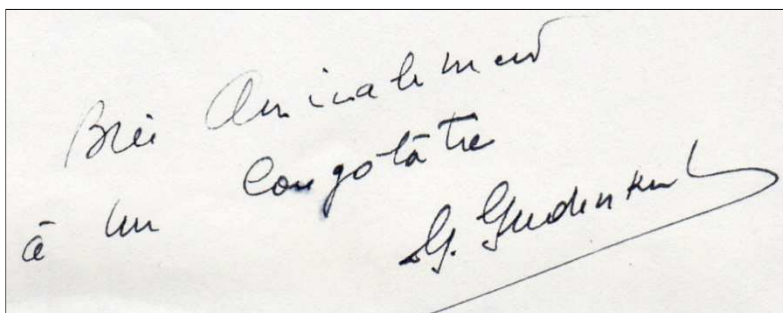 Bien Amicalement
à un Congolâtre
G. Gudenkauf